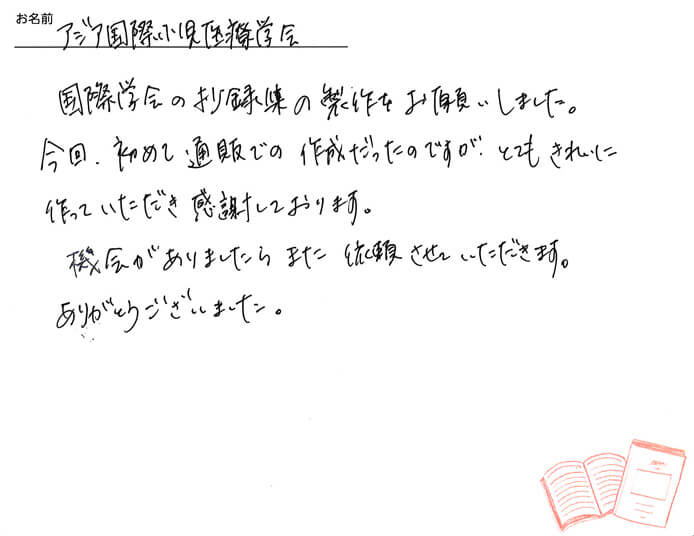 お名前
アジア国際小児医療学会
国際学会の抄録集の製作をお願いしました。
今回、初めて通販での作成だったのですが、とてもきれいに
作っていただき感謝しております。
機会がありましたらまた依頼させていただきます。
ありがとうございました。